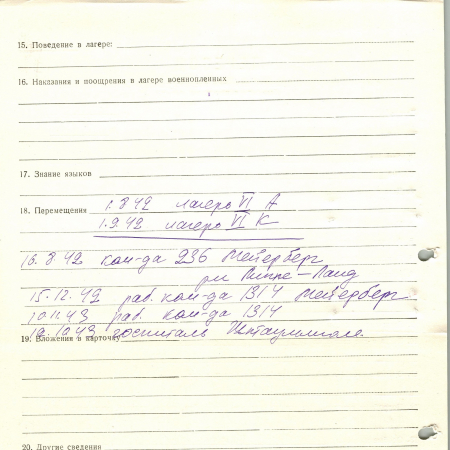 15. Поведение в лагере:
16. Наказания и поощрения в лагере военнопленных
17. Знание языков
18. Перемещения 1.8 42 лагерь VI А
1.9.42 лагерь VI К
16.8 42 ком-да 236 Мейерберг
Липпе-Ланд
15.12.42 раб. ком-да 1314 Мейерберг
43 раб. ком-да 1314
43 госпиталь
19. Вложения в карточку
20. Другие сведения